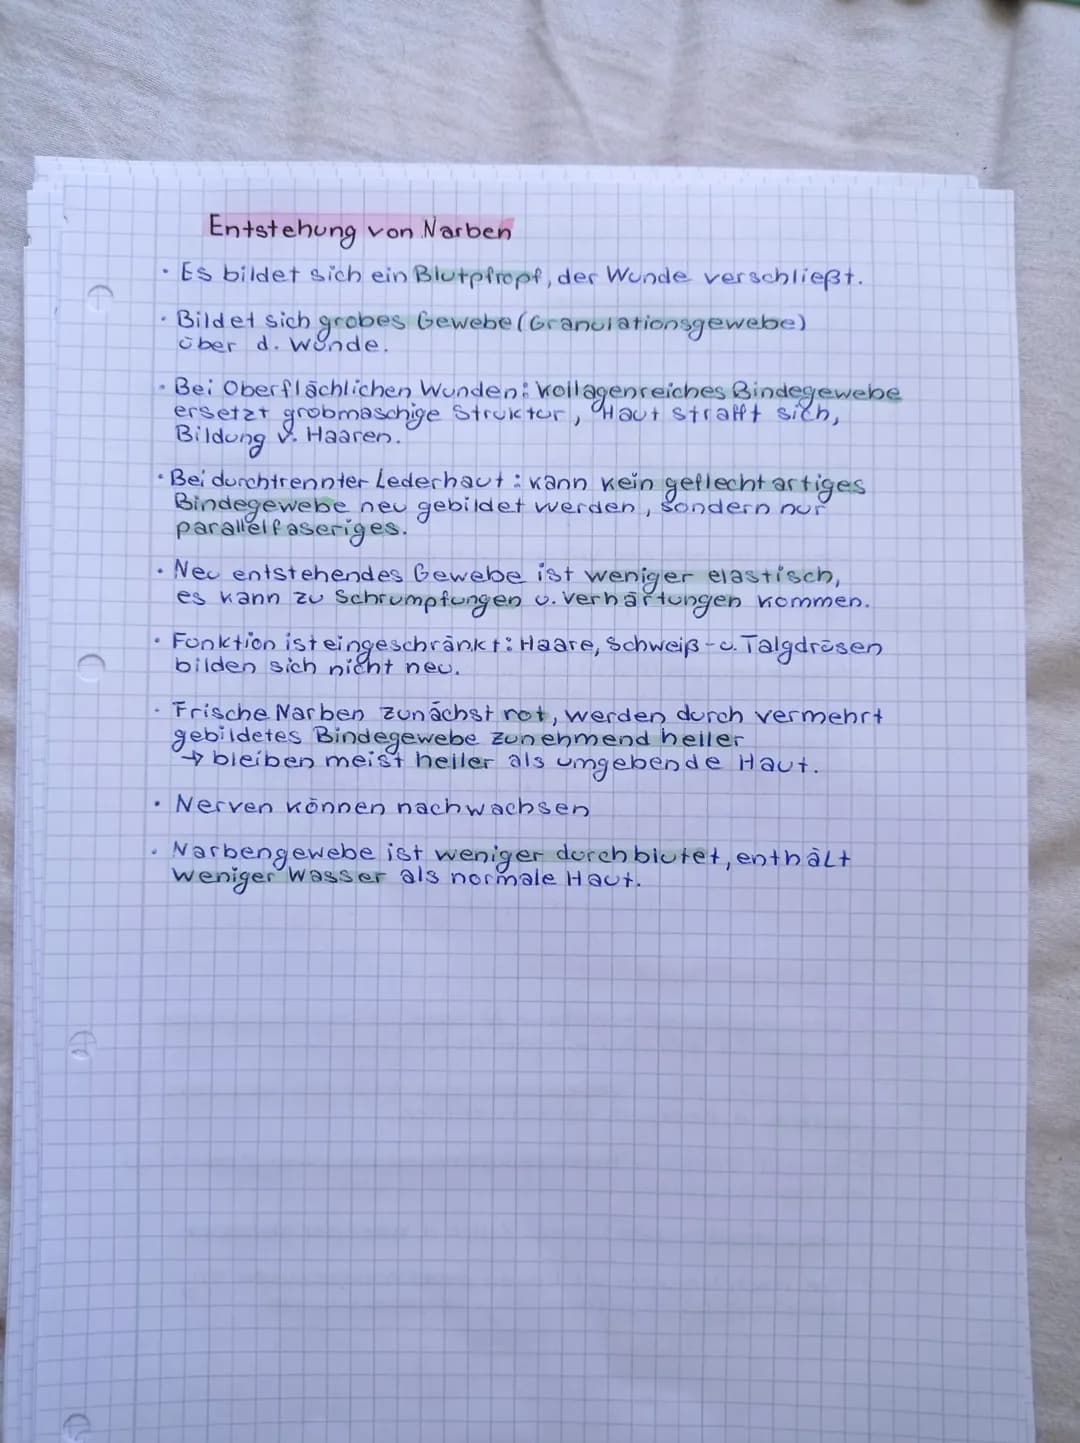 Entstehung von Narben
• Es bildet sich ein Blutpfropf, der Wunde verschließt.
• Bildet sich grobes Gewebe (Granulationsgewebe)
über d. Wunde.
• Bei Oberflächlichen Wunden: kollagenreiches Bindegewebe
ersetzt grobmaschige Struktur, Haut strafft sich,
Bildung v. Haaren.
• Bei durchtrennter Lederhaut: kann kein geflechtartiges
Bindegewebe neu gebildet werden, sondern nur
parallelfaseriges.
• Neu entstehendes Gewebe ist weniger elastisch,
es kann zu Schrumpfungen u. Verhärtungen kommen.
• Funktion ist eingeschränkt: Haare, Schweiß- u. Talgdrüsen
bilden sich nicht neu.
• Frische Narben zunächst rot, werden durch vermehrt
gebildetes Bindegewebe zunehmend heller
→ bleiben meist heller als umgebende Haut.
• Nerven können nachwachsen
• Narbengewebe ist weniger durchblutet, enthält
weniger Wasser als normale Haut.